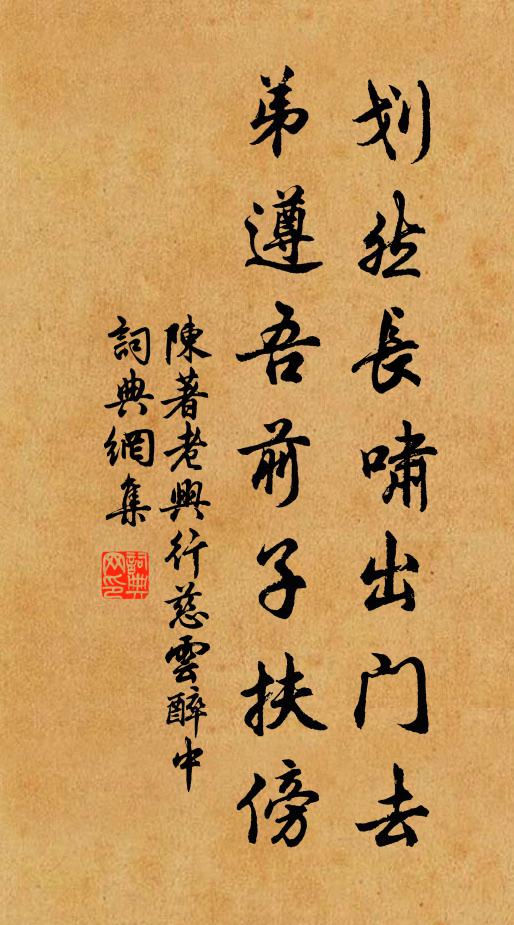 划然長嘯出门去
弟遵吾前子扶傍
陳著老興行慈雲醉中
詞典網集
詞典
网印